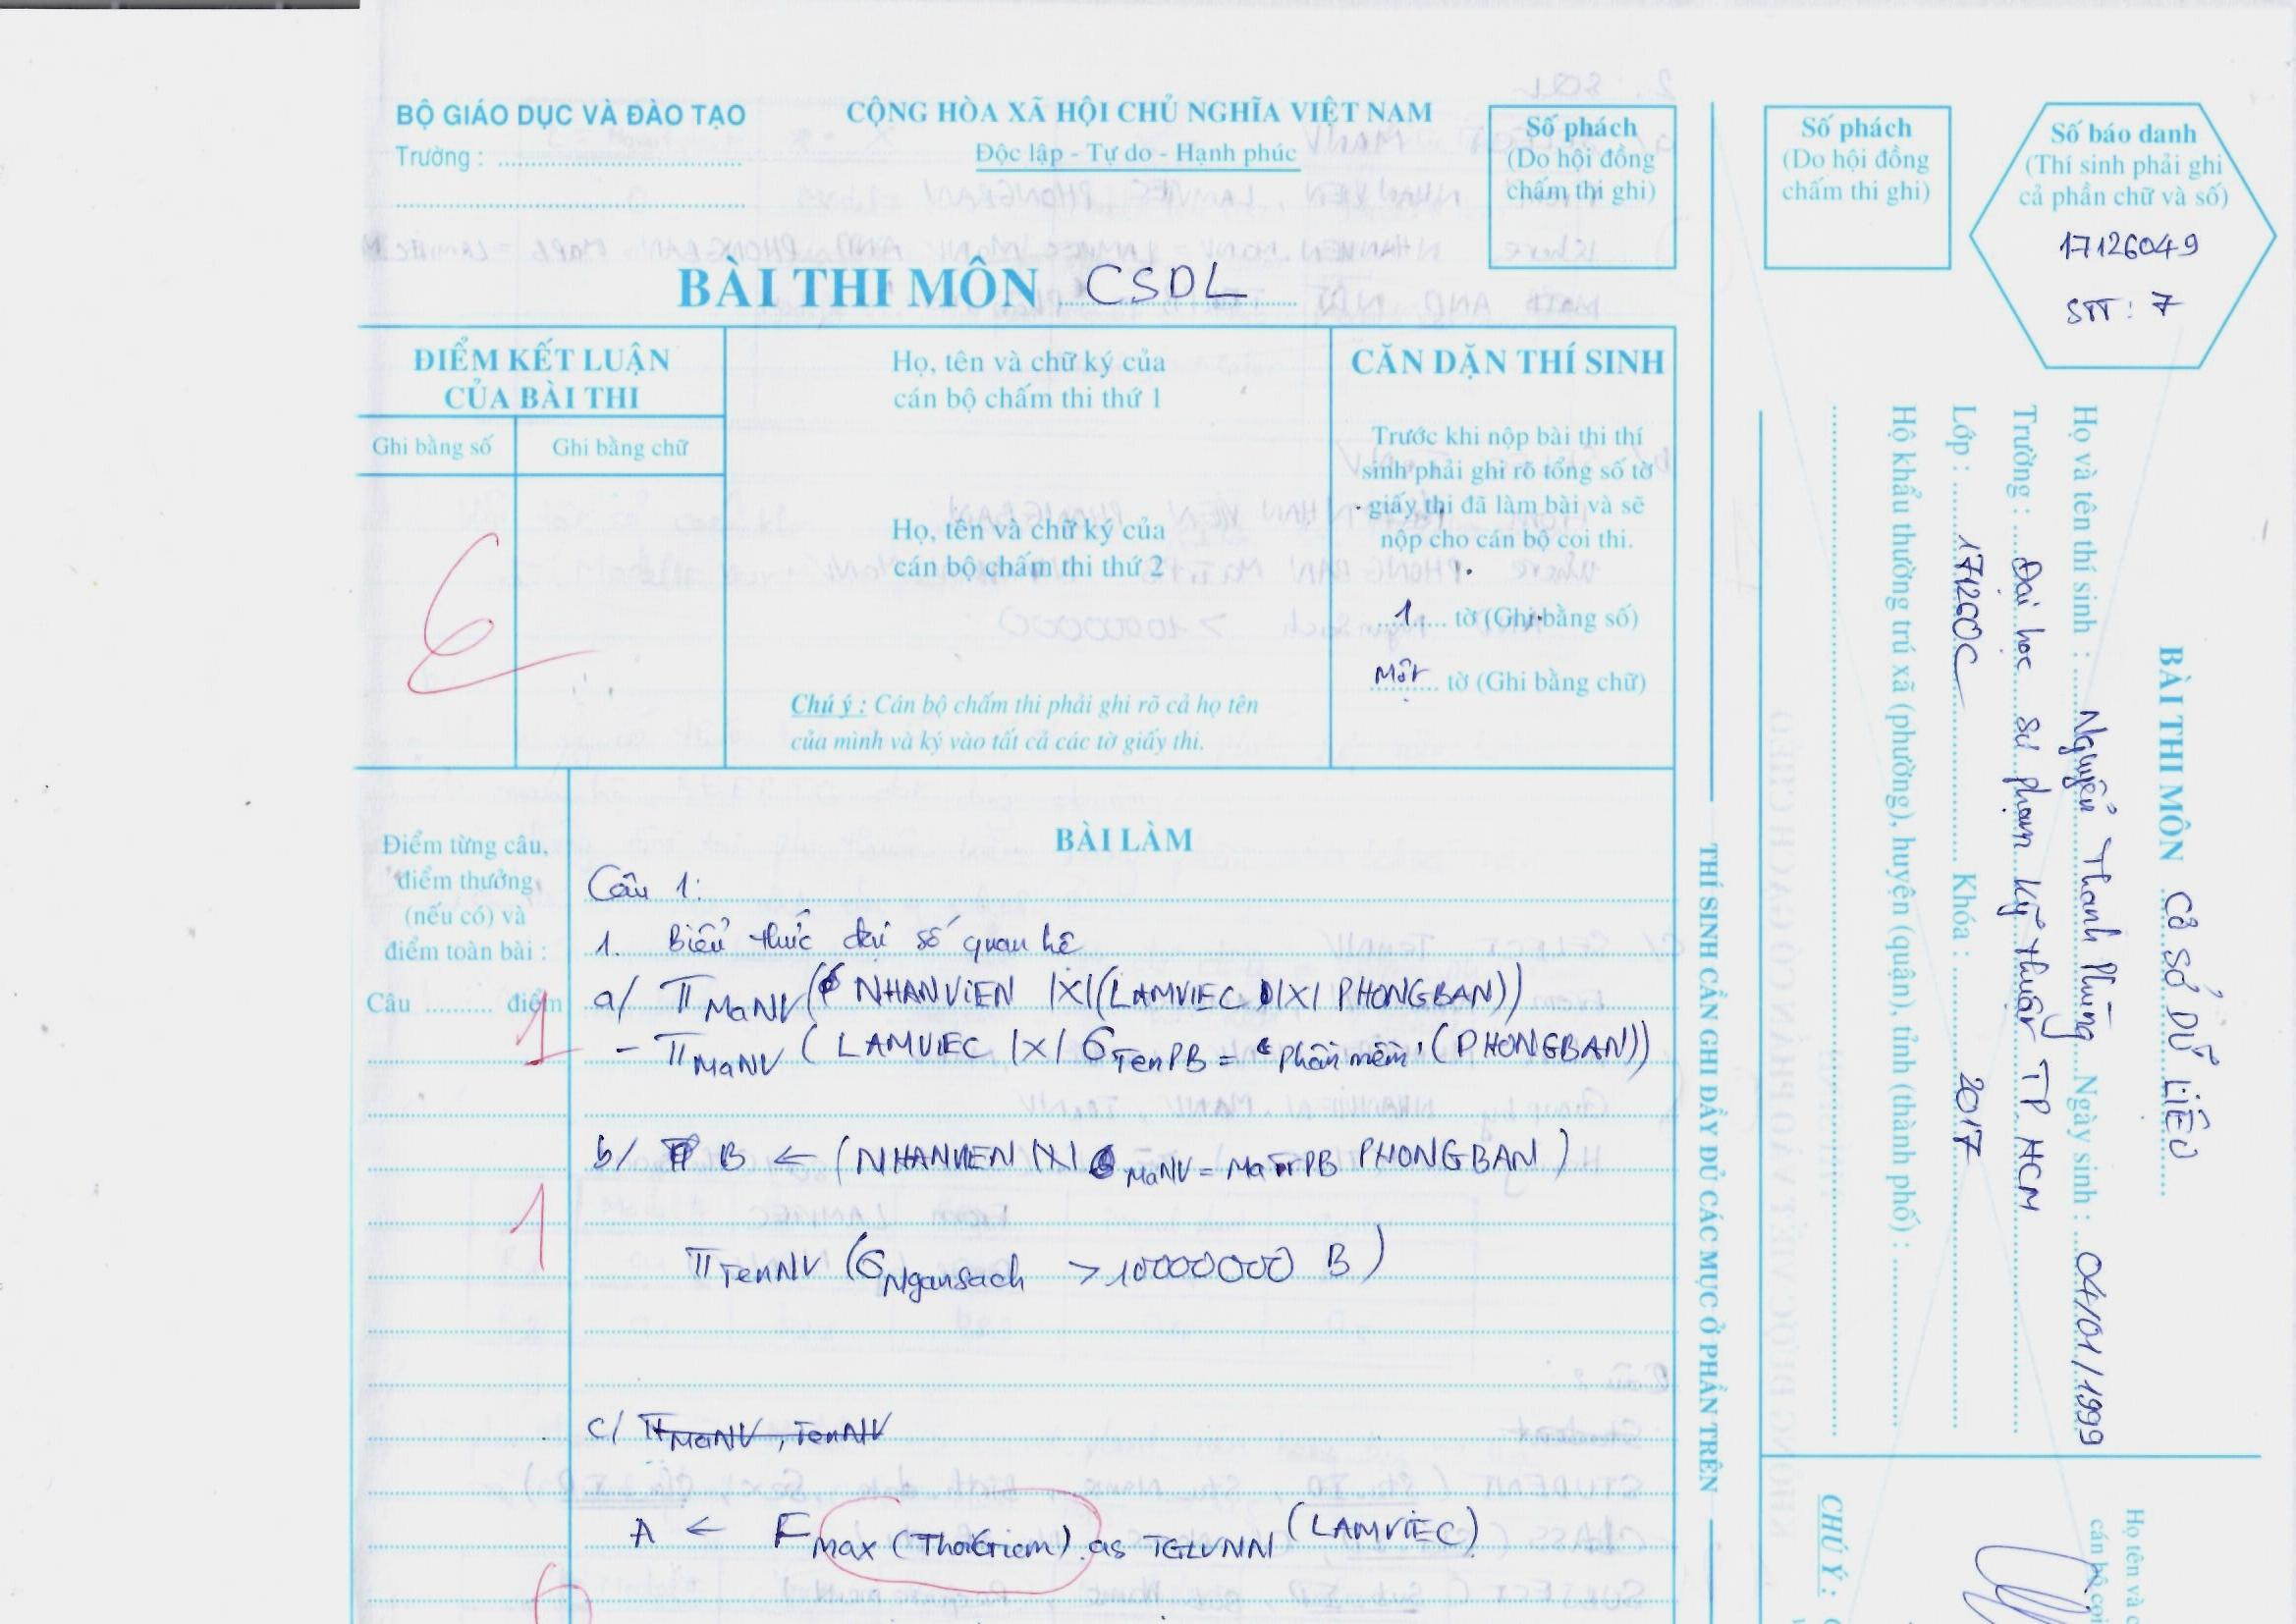 BỘ GIÁO DỤC VÀ ĐÀO TẠO
Trường :
CỘNG HÒA XÃ HỘI CHỦ NGHĨA VIỆT NAM
Độc lập - Tự do - Hạnh phúc
Số phách
(Do hội đồng
chấm thi ghi)
BÀI THI MÔN CSDL
ĐIỂM KẾT LUẬN
CỦA BÀI THI
Ghi bằng số
Ghi bằng chữ
6
Họ, tên và chữ ký của
cán bộ chấm thi thứ 1
Họ, tên và chữ ký của
cán bộ chấm thi thứ 2
Chú ý : Cán bộ chấm thi phải ghi rõ cả họ tên
của mình và ký vào tất cả các tờ giấy thi.
CĂN DẶN THÍ SINH
Trước khi nộp bài thi thí
sinh phải ghi rõ tổng số tờ
giấy thi đã làm bài và sẽ
nộp cho cán bộ coi thi.
1 tờ (Ghi bằng số)
Một tờ (Ghi bằng chữ)
Điểm từng câu,
điểm thưởng
(nếu có) và
điểm toàn bài :
Câu .......... điểm
1
1
BÀI LÀM
Câu 1:
1. Biểu thức đại số quan hệ
a/ π MaNV ( NHANVIEN |X| (LAMVIEC |X| PHONGBAN))
- π MaNV ( LAMVIEC |X| σ TenPB = 'Phần mềm' (PHONGBAN))
b/ B ← (NHANVIEN |X| MaNV = MaTrPB PHONGBAN )
π TenNV (σ Ngansach > 10000000 B )
c/ π MaNV, TenNV
A ← F max (ThoiGian) as TGLVNN (LAMVIEC)
THÍ SINH CẦN GHI ĐẦY ĐỦ CÁC MỤC Ở PHẦN TRÊN
Số phách
(Do hội đồng
chấm thi ghi)
Số báo danh
(Thí sinh phải ghi
cả phần chữ và số)
17126049
STT : 7
BÀI THI MÔN CƠ SỞ DỮ LIỆU
Họ và tên thí sinh : Nguyễn Thanh Phùng Ngày sinh : 04/01/1999
Trường : Đại học Sư phạm Kỹ thuật TP HCM
Lớp : 17126OC Khóa : 2017
Hộ khẩu thường trú xã (phường), huyện (quận), tỉnh (thành phố) :
CHÚ Ý :
Họ tên và c
cán bộ coi